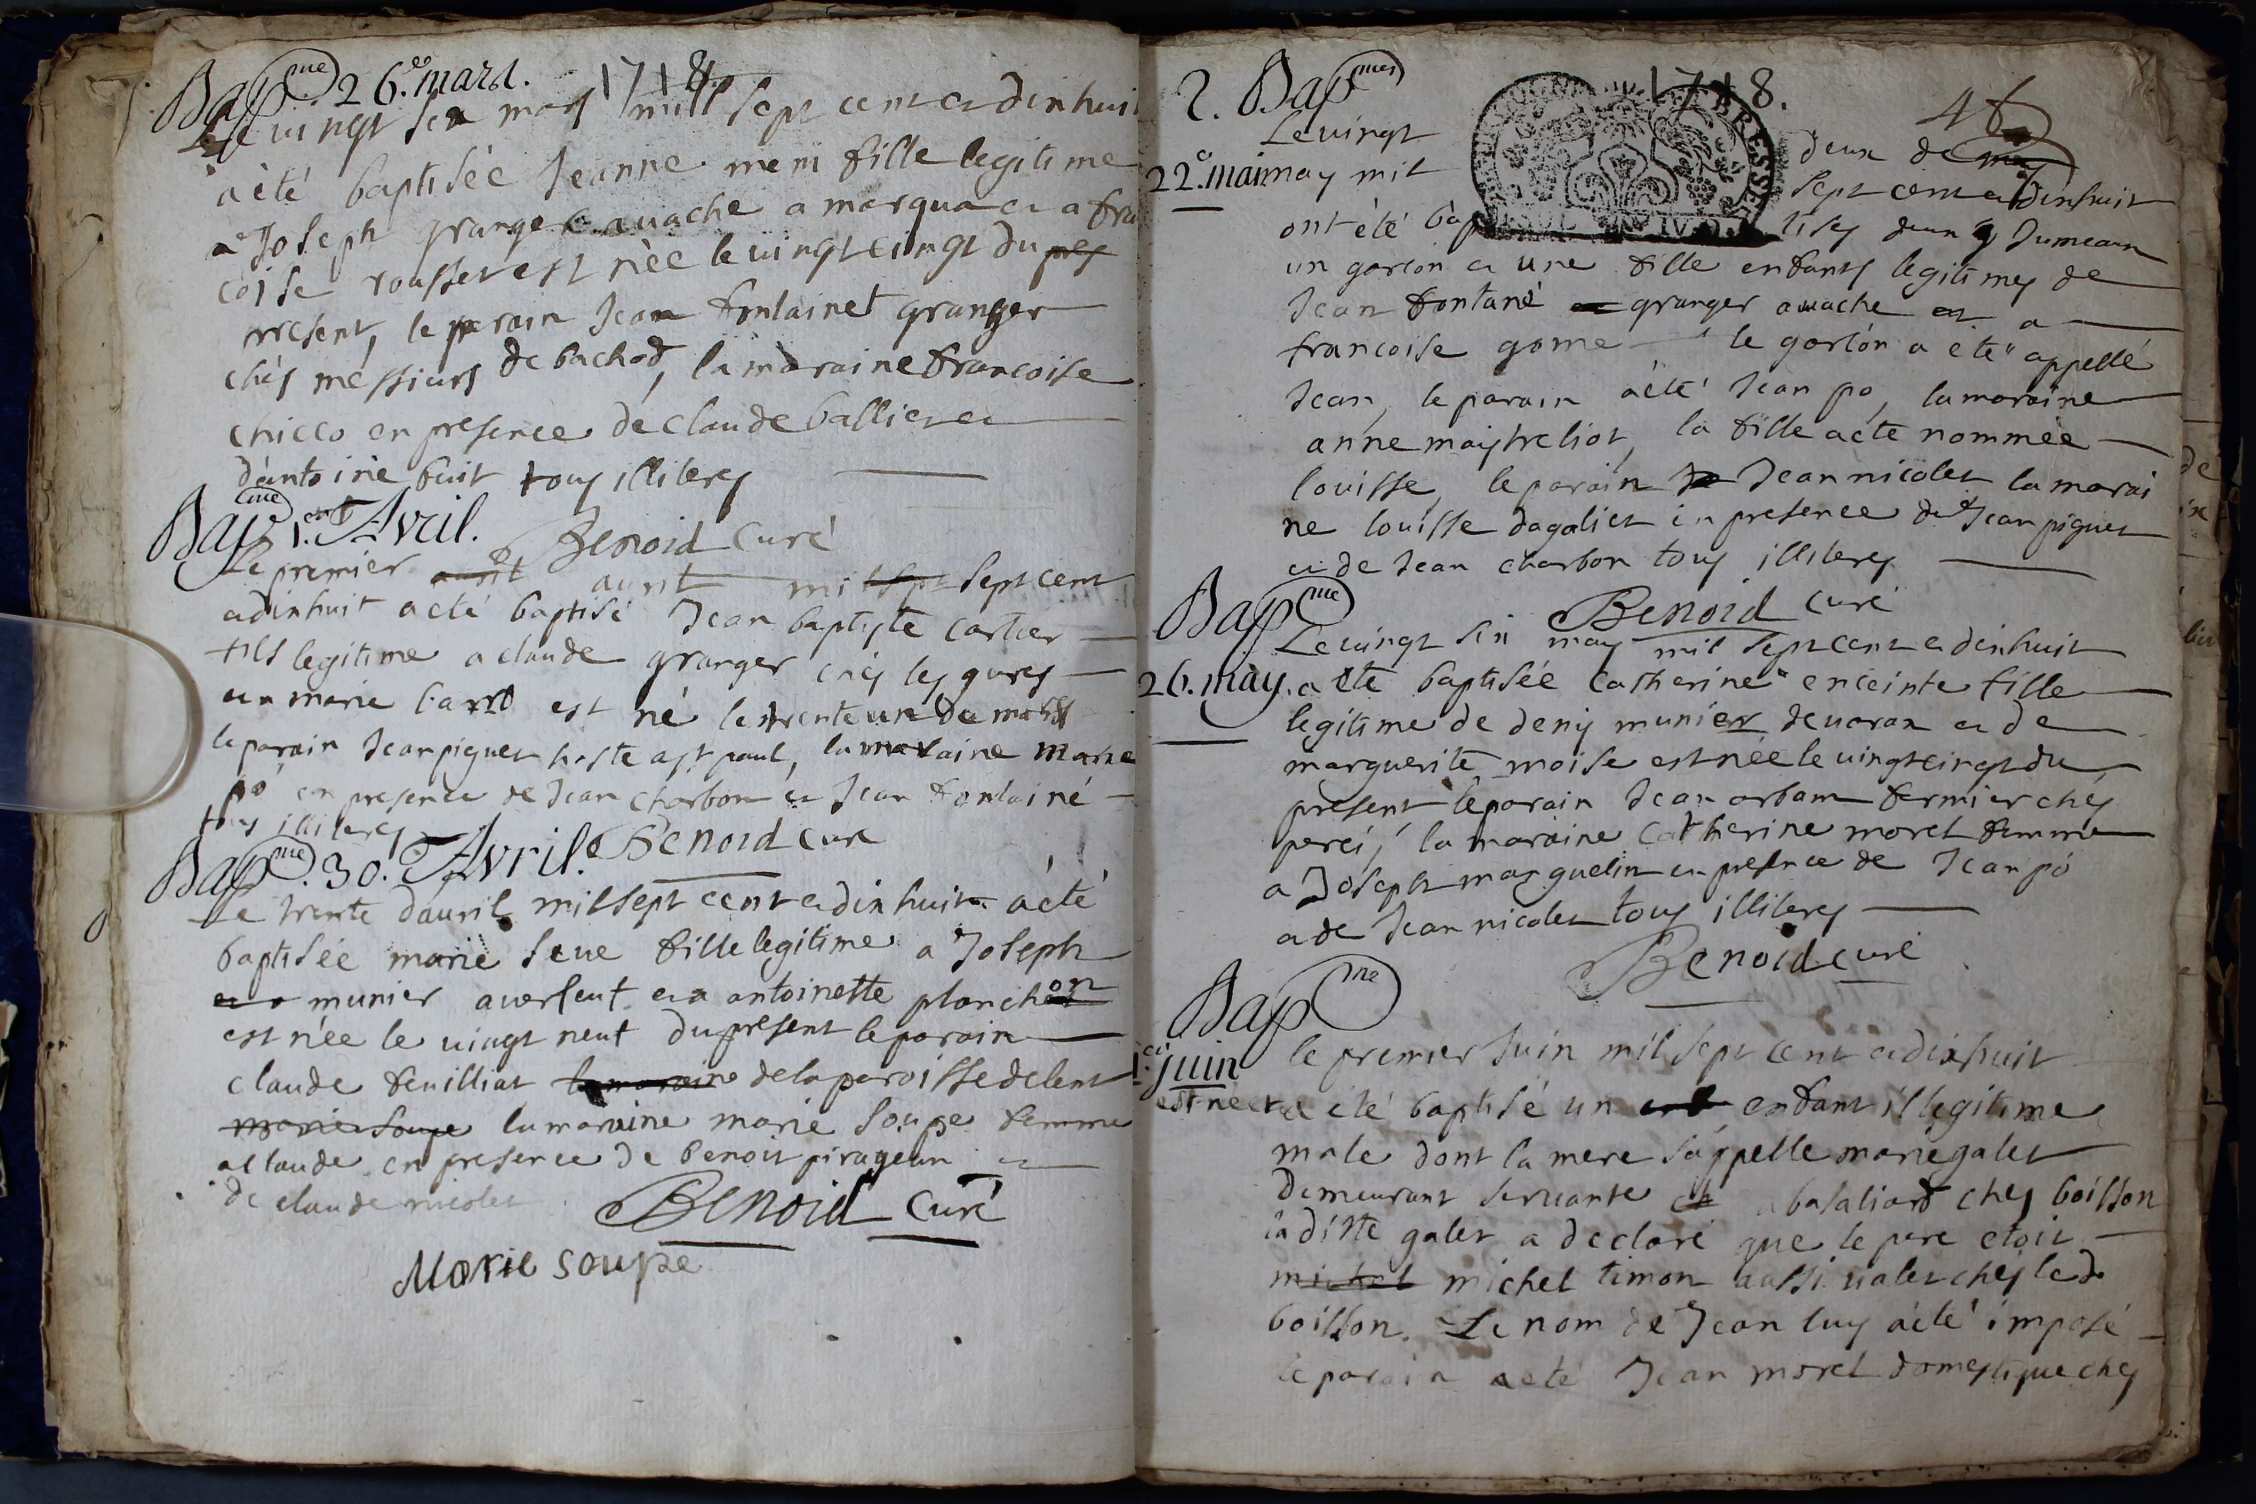 Bap.me 26.e mars. 1718.
Le vingt six mars mill sept cent et dixhuit
a èté baptisée Jeanne meni fille legitime
a Joseph granger a vache a marqua et a fran
coise rousset est née le vingt cinqt du pres
present, le parain Jean fontainet granger
chés messieurs de bachod, la maraine francoise
chicco en presence de claude ballier et
d'antoine buit tous illiteres
Bap.me 1.er Avril. Benoid curé
Le premier avril avril mil sept sept cent
et dixhuit a eté baptisé Jean baptiste cartier
fils legitime a claude granger chés les gures
et a marie barro est né le trente un de mars
le parain Jean piguet hoste a st paul, la maraine marie
po en presence de Jean charbon et Jean fontainé
tous illiteres Benoid cure
Bap.me 30. Avril.
Le trente d'avril mil sept cent et dix huit a èté
baptisée marie seve fille legitime a Joseph
et a munier a verseut et a antoinette planchon
est née le vingt neuf du present le parain
claude feuilliat la maraine de la paroisse de lent
marie soupe la maraine marie soupe femme
a claude en presence de benoit pirageun et
de claude nicolet Benoid curé
Marie soupe
2. Bap.mes 1718. 46
Le vingt deux de may
22.e mai may mil sept cent et dixhuit
ont été baptisés deux Jumeaux
un garcon et une fille enfants legitimes de
Jean fontané granger a vache et a
francoise gome le garcon a eté appellé
Jean, le parain a été Jean po, la maraine
anne maistreliot, la fille a éte nommée
louisse, le parain Jean nicolet la marai
ne louisse dagalier en presence de Jean piguet
et de Jean charbon tous illiteres
Bap.me Benoid curé
Le vingt six may mil sept cent et dixhuit
26. may. a éte baptisée catherine enceinte fille
legitime de denis munier de varax et de
marguerite moise est née le vingt cinqt du
present le parain Jean arbam fermier ches
perci, la maraine catherine morel femme
a Joseph marguelin en presence de Jean po
et de Jean nicolet tous illiteres
Benoid curé
Bap.me
1.er juin le premier Juin mil sept cent et dixhuit
est né et a eté baptisé un enfant illegitime
male dont la mere s'appelle marie galet
demeurant servante a basaliard ches boisson
la ditte galet a declaré que le pere etoit
michel michel timon aussi valet ches led.
boisson. Le nom de Jean luy a èté imposé
le parain a eté Jean morel domestique ches